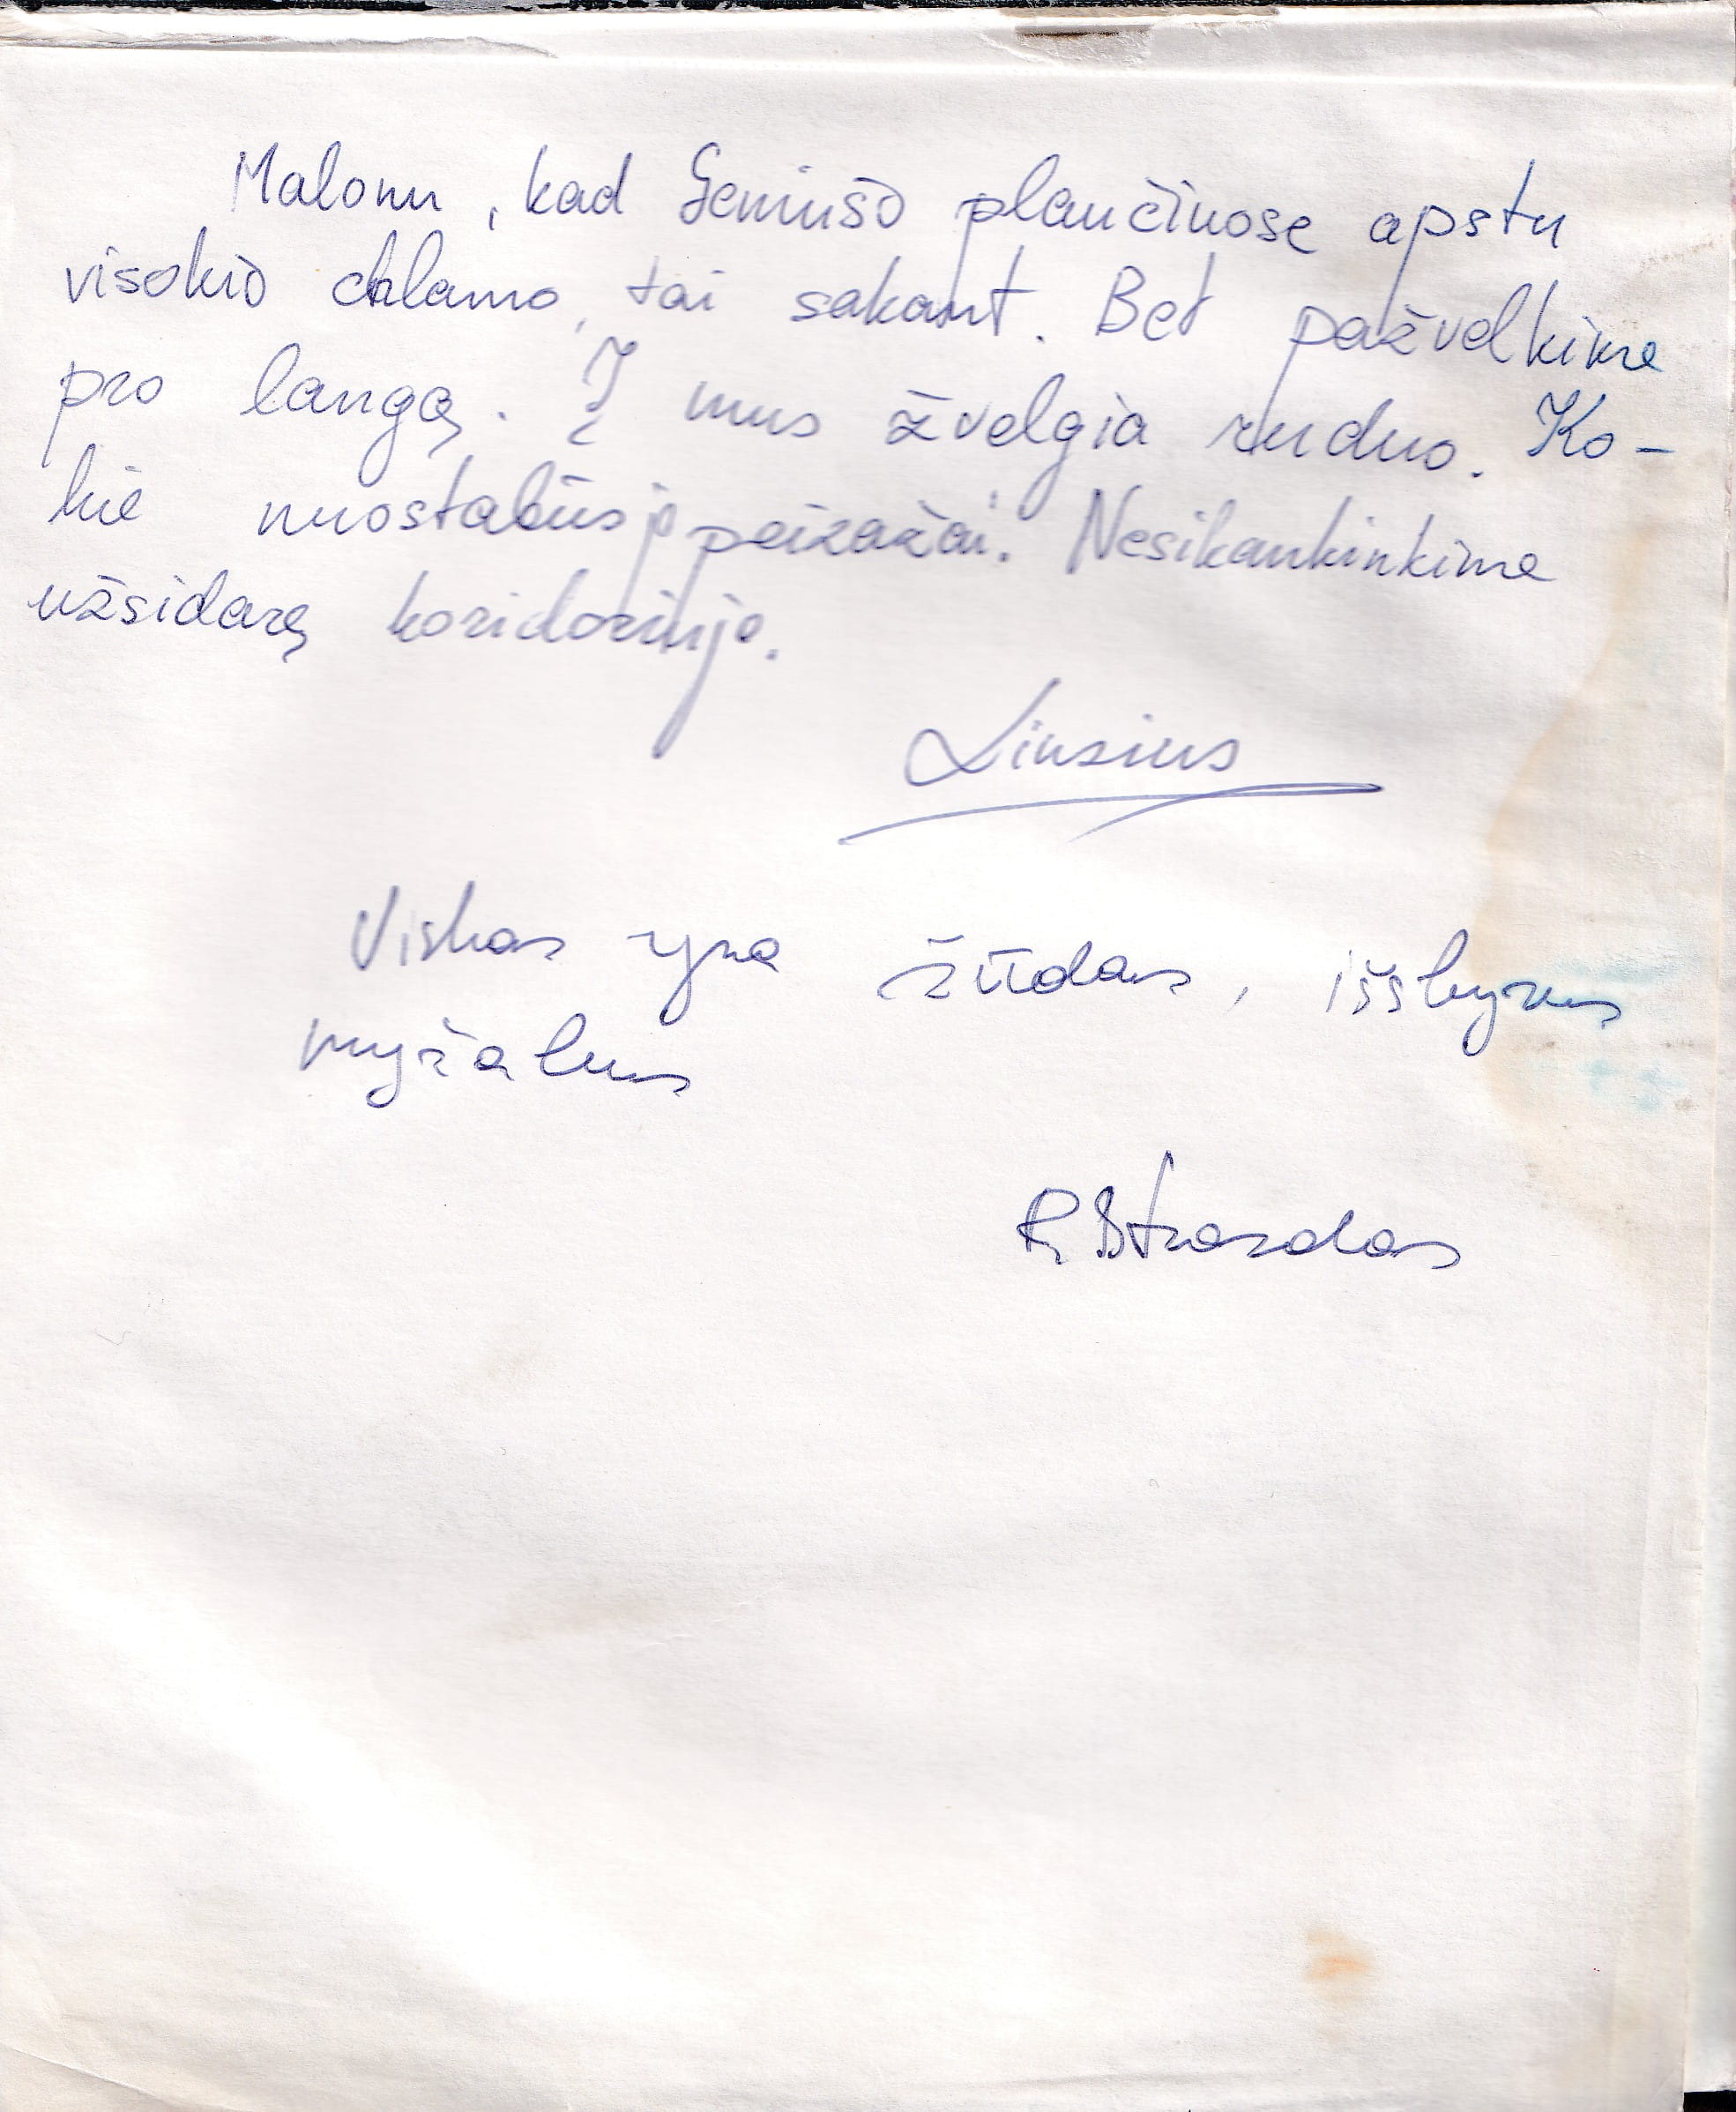 Malonu, kad Geniušo plaučiuose apstu
visokio chlamo, tai sakant. Bet pažvelkime
pro langą. Į mus žvelgia ruduo. Ko-
kie nuostabūs jo peizažai. Nesikankinkime
užsidarę koridoriuje.
Linsius
Viskas yra žūdas, išskyrus
myžalus
R Strazdas